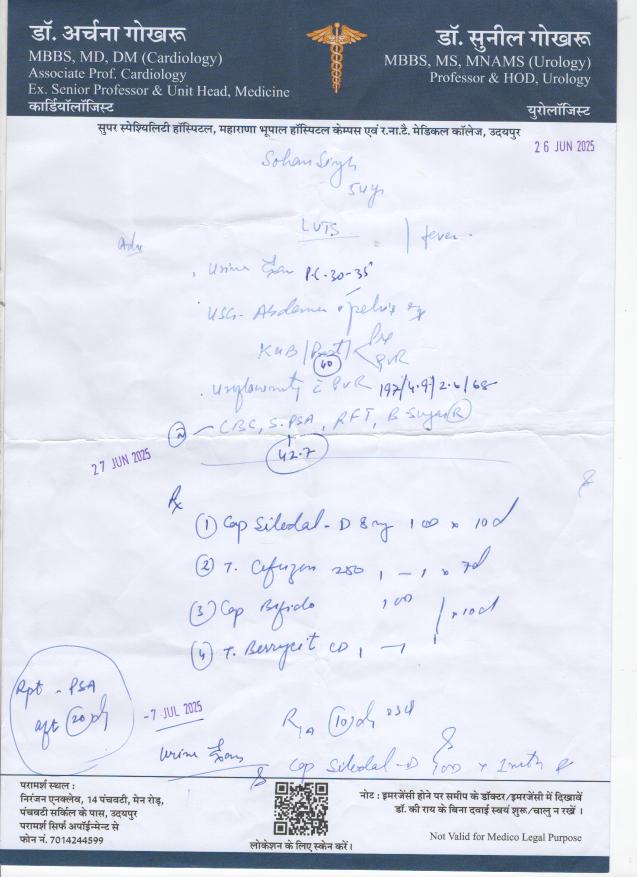 डॉ. अर्चना गोखरू
MBBS, MD, DM (Cardiology)
Associate Prof. Cardiology
Ex. Senior Professor & Unit Head, Medicine
कार्डियॉलॉजिस्ट
डॉ. सुनील गोखरू
MBBS, MS, MNAMS (Urology)
Professor & HOD, Urology
युरोलॉजिस्ट
सुपर स्पेशियलिटी हॉस्पिटल, महाराणा भूपाल हॉस्पिटल केम्पस एवं र.ना.टै. मेडिकल कॉलेज, उदयपुर
26 JUN 2025
Sohan Singh
54y
LUTS
fever
Adv
Urine Exam P.C-30-35
USG- Abdomen pelvis
KUB / Prost / Pre
40 PVR
Uroflowmetry c PVR 197/4.9/2.6/68
N CBC, S.PSA, RFT, B Sugar R
42.7
27 JUN 2025
Rx
1 Cap Siledal-D 8mg 100 x 10d
2 T. 250 1-1 x 7d
3 Cap Bifido 100
x 10d
4 T. CD 1-1
Rpt - PSA
aft 20 d
-7 JUL 2025
10 d
Urine Exam
Cap Siledal-D x 1mth
परामर्श स्थल :
निरंजन एनक्लेव, 14 पंचवटी, मेन रोड़,
पंचवटी सर्किल के पास, उदयपुर
परामर्श सिर्फ अपॉईन्मेन्ट से
फोन नं. 7014244599
लोकेशन के लिए स्केन करें।
नोट : इमरजेंसी होने पर समीप के डॉक्टर/इमरजेंसी में दिखावें
डॉ. की राय के बिना दवाई स्वयं शुरू/चालु न रखें ।
Not Valid for Medico Legal Purpose